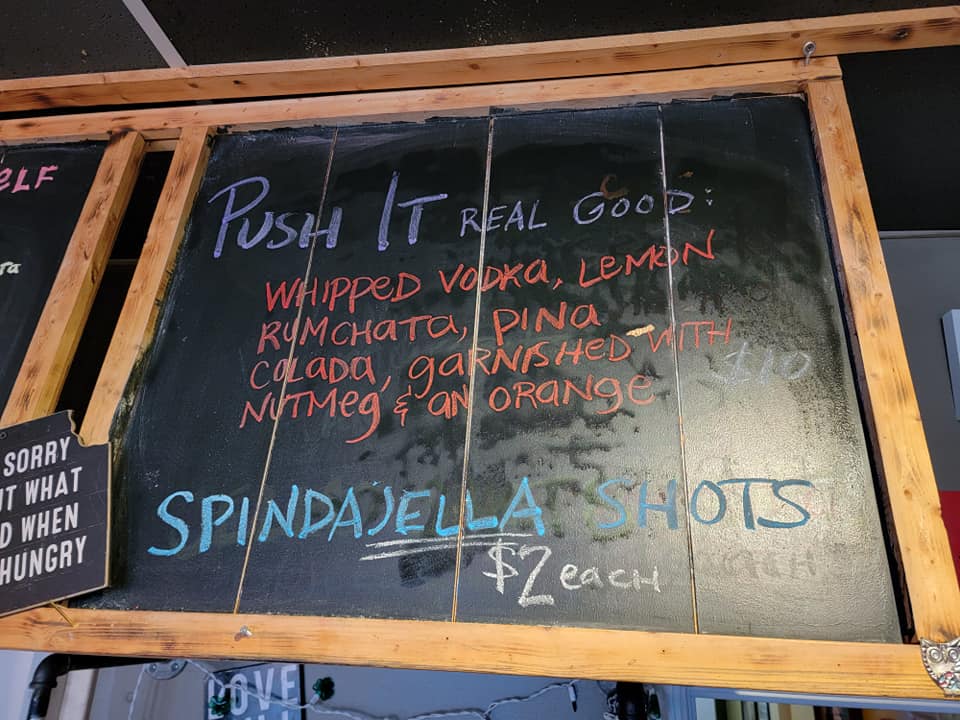 eLF
ra
PUSH IT REAL GOOD:
WHIPPED VODKA, LEMON
RUMCHATA, PINA
COLADA, GARNISHED WITH
$10
NUTMEG & AN ORANGE
SPINDA'JELLA SHOTS
$2 each
SORRY
IT WHAT
D WHEN
HUNGRY
LOVE